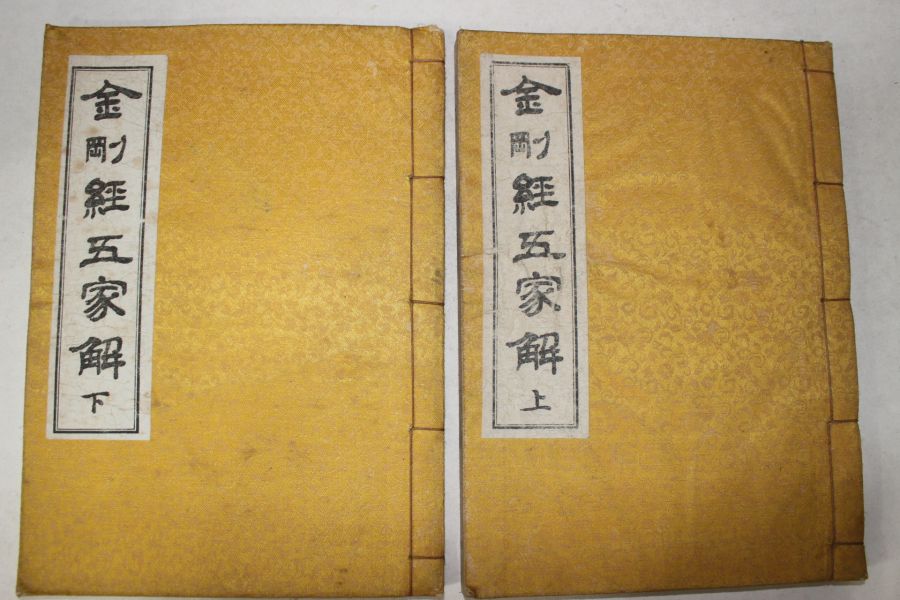 金剛經五家解 上
金剛經五家解 下